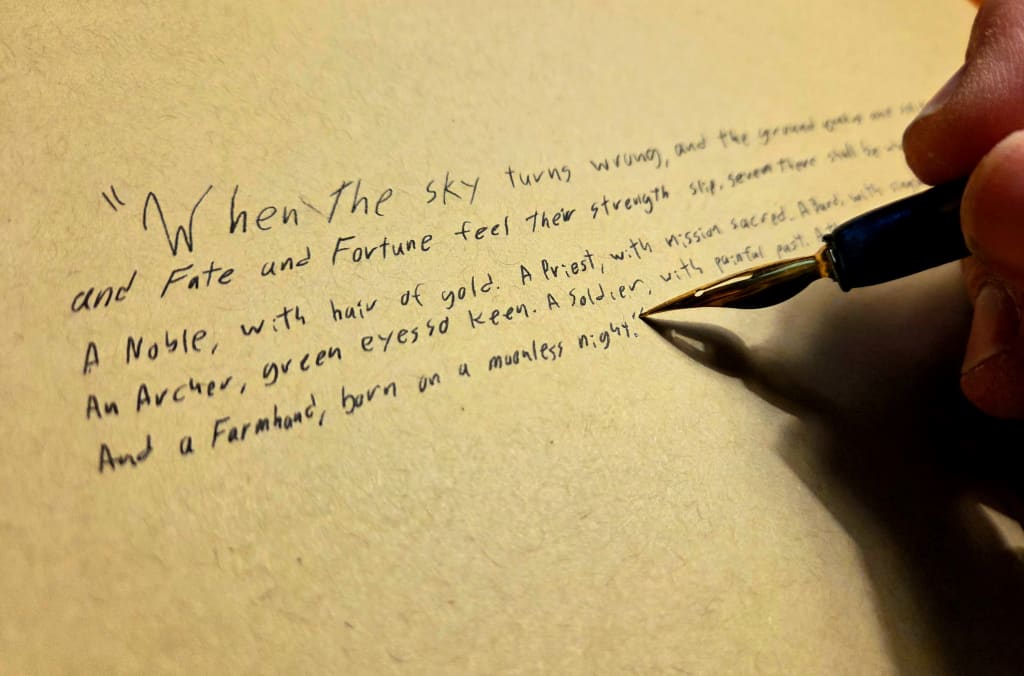 "When The sky turns wrong, and the ground
and Fate and Fortune feel their strength slip, seven there shall be
A Noble, with hair of gold. A Priest, with mission sacred. A Bard, with
An Archer, green eyes so keen. A Soldier, with painful past. A
And a Farmhand, born on a moonless night."